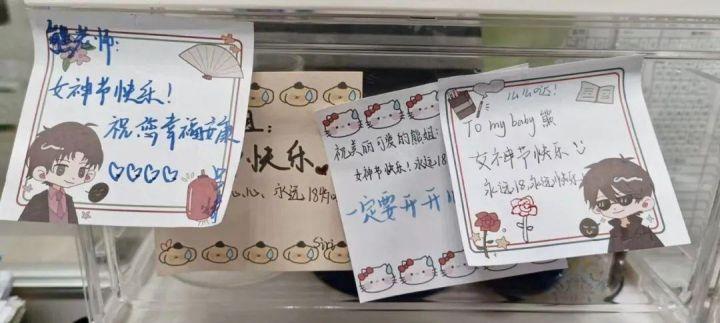 熊老师:
女神节快乐!
祝您幸福安康
姐:
快乐
心心、永远18
祝美丽可爱的熊姐:
女神节快乐!永远18
一定要开开
么么哒!
To my baby 熊
女神节快乐
永远18,永远快乐